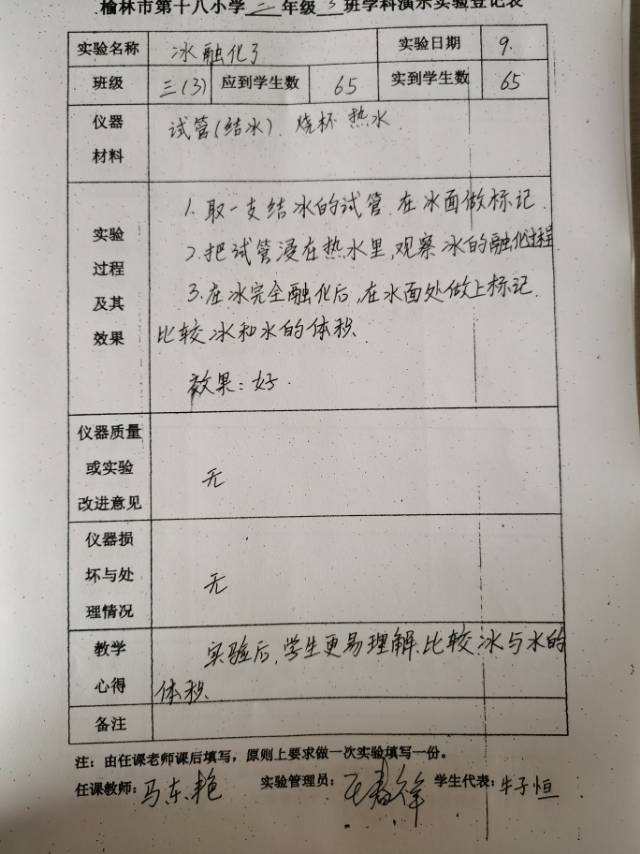 榆林市第十八小学三年级3班学科演示实验登记表
实验名称 冰融化了 实验日期 9.
班级 三(3) 应到学生数 65 实到学生数 65
仪器 试管(结冰) 烧杯 热水
材料
1.取一支结冰的试管,在冰面做标记.
实验 2.把试管浸在热水里,观察冰的融化过程
过程 3.在冰完全融化后,在水面处做上标记.
及其 比较冰和水的体积.
效果
效果:好.
仪器质量
或实验 无
改进意见
仪器损
坏与处 无
理情况
教学 实验后,学生更易理解.比较冰与水的
心得 体积.
备注
注:由任课老师课后填写,原则上要求做一次实验填写一份。
任课教师:马东艳 实验管理员: 学生代表:牛子恒